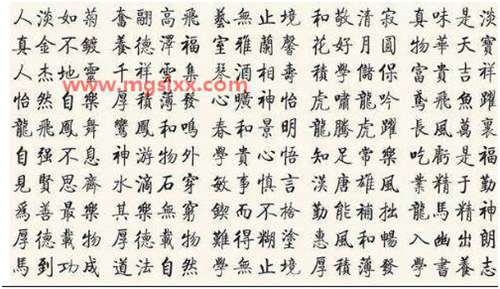 人淡如菊奮翮高飛藝無止境和敬清寂真味是淡
真金不鍍養德澤福室雅蘭馨花好月圓物華天寶
人杰地靈千祥雲集酒相壽學儲保富貴吉祥
www.mgslxx.com
怡然自樂厚積薄發心曠神怡虎嘯龍吟鳶飛魚躍
龍飛鳳舞鸞鳳和鳴春和景明龍騰虎躍長風萬裏
自强不息神游物外學貴心悟知足常樂吃虧是福
見賢思齊水滴石穿敏事慎言漢唐雄風業精于勤
爲善最樂其樂無窮鍥而不捨勤能補拙龍馬精神
厚德載物厚德載物難得糊塗惠風和暢入幽出朗
馬到功成道法自然學無止境厚積薄發學書養志